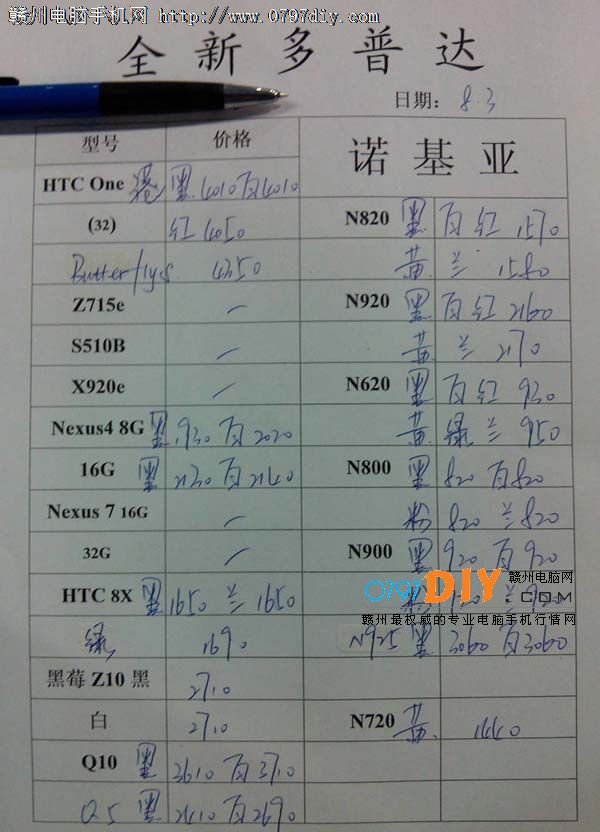 赣州电脑手机网 http://www.0797diy.com
全新多普达
日期： 8.3
型号 价格 诺基亚
HTC One 港 黑 4010 白 4010
(32) 红 4050 N820 黑 白 红 1570
Butterflys 4350 黄 兰 1580
Z715e — N920 黑 白 红 2160
S510B — 黄 兰 2170
X920e — N620 黑 白 红 930
Nexus4 8G 黑 1930 白 2020 黄 绿 兰 950
16G 黑 2130 白 2140 N800 黑 820 白 820
Nexus 7 16G — 粉 820 兰 820
32G — N900 黑 920 白 920
HTC 8X 黑 1650 兰 1650
0797DIY.COM 赣州电脑网
赣州最权威的专业电脑手机行情网
绿 1690 N925 黑 3060 白 3060
黑莓 Z10 黑 2710
白 2710 N720 黄 1440
Q10 黑 3610 白 3710
Q5 黑 2410 白 2690